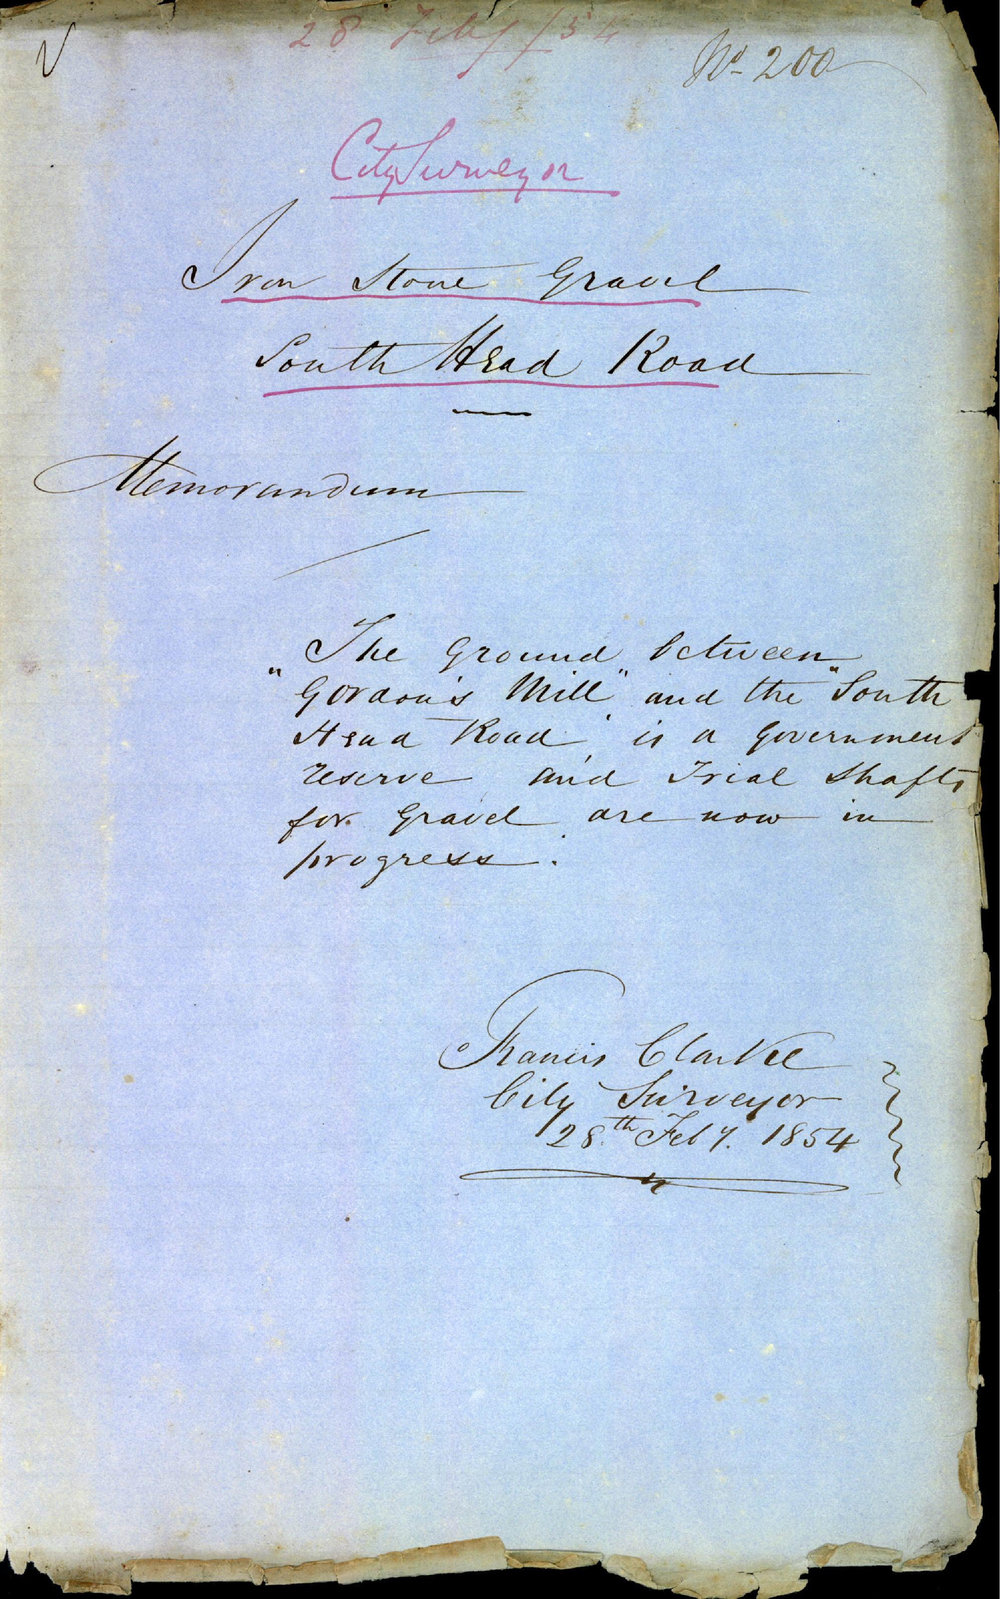 28 Feby/54
No- 200
City Surveyor
Iron Stone Gravel
South Head Road
Memorandum
The Ground between
"Gordon's Mill" and the "South
Head Road" is a Government
reserve and Trial Shafts
for Gravel are now in
progress.
Francis Clarke
City Surveyor
28th Feby. 1854